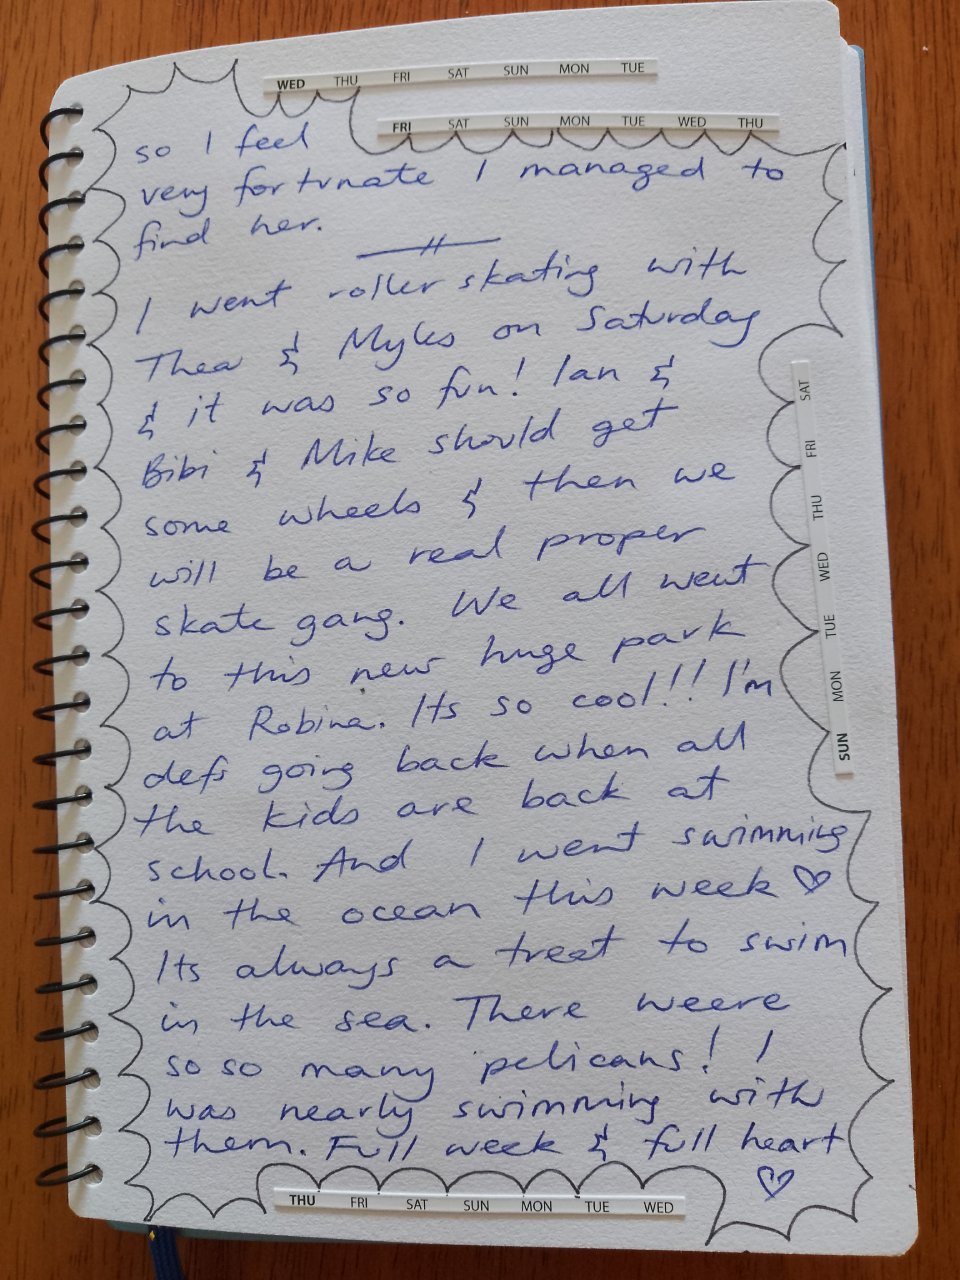 WED THU FRI SAT SUN MON TUE
FRI SAT SUN MON TUE WED THU
so I feel
very fortunate I managed to
find her.
I went roller skating with
Thea & Myles on Saturday
& it was so fun! Ian &
Bibi & Mike should get
some wheels & then we
will be a real proper
skate gang. We all went
to this new huge park
at Robina. Its so cool!! I'm
defs going back when all
the kids are back at
school. And I went swimming
in the ocean this week ♡
Its always a treat to swim
in the sea. There weere
so so many pelicans! I
was nearly swimming with
them. Full week & full heart
♡
SAT FRI THU WED TUE MON SUN
THU FRI SAT SUN MON TUE WED